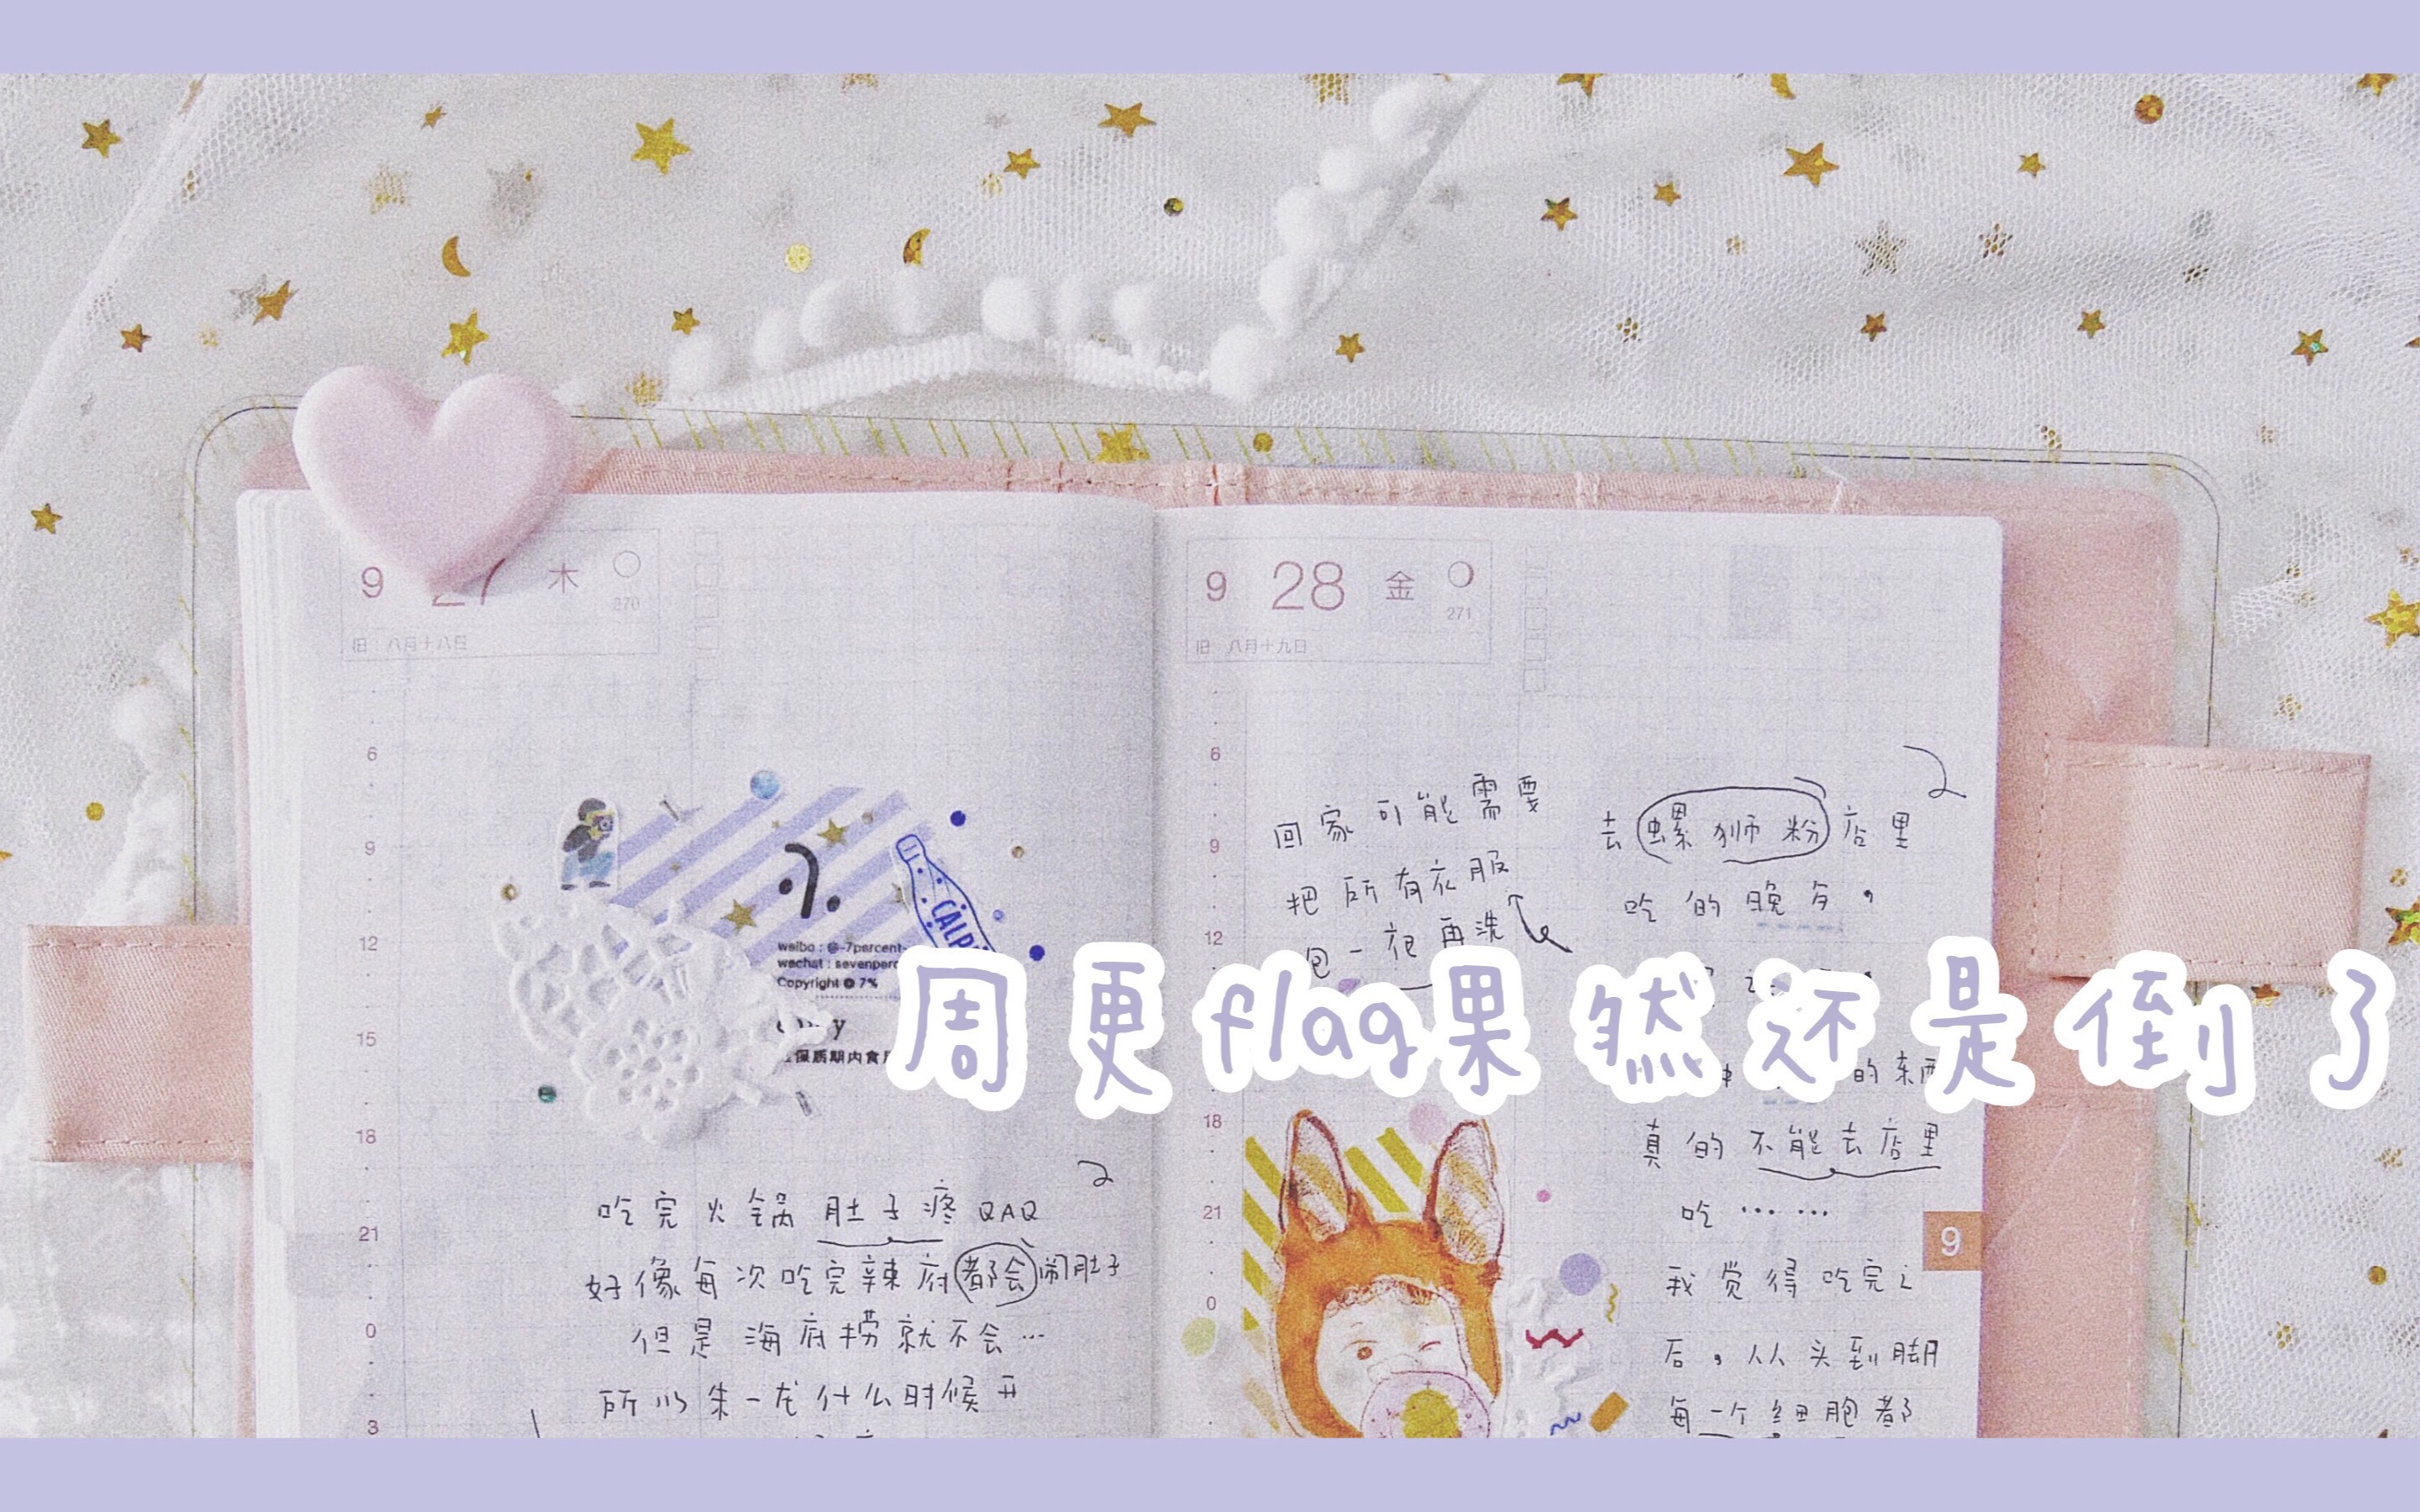 9 27 木
270
旧 八月十八日
6
9
12
15
18
21
0
3
CALP
weibo : @-7percent-
wechat : sevenperc
Copyright @ 7%
保质期内食用
吃完火锅肚子疼QAQ
好像每次吃完辣府都会闹肚子
但是海底捞就不会…
所以朱一龙什么时候开
9 28 金
271
旧 八月十九日
6
9
12
18
21
0
回家可能需要
把所有衣服
包一夜再洗
去螺狮粉店里
吃的晚勺，
的东西
真的不能去店里
吃……
我觉得吃完之
后，从头到脚
每一个细胞都
9
周更flag果然还是倒了